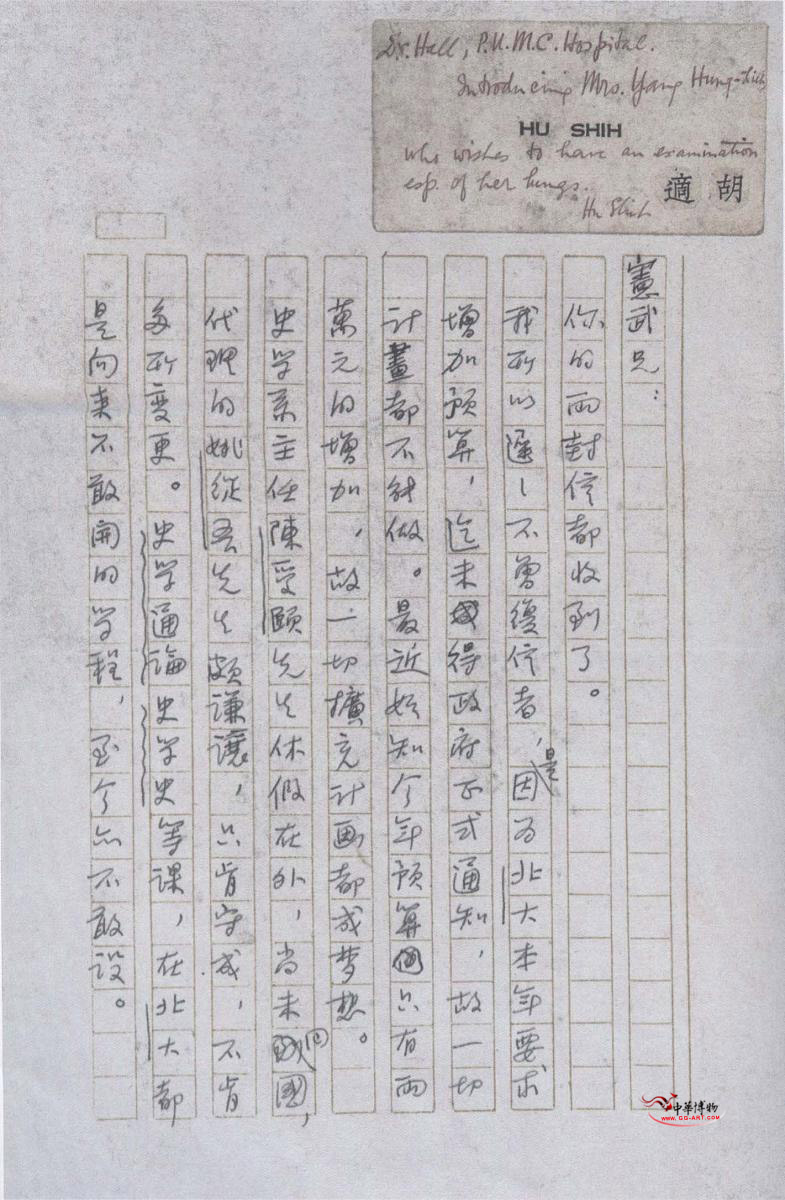 Dr. Hall, P.U.M.C. Hospital.
Introducing Mrs. Yang Hung-lieh
HU SHIH
who wishes to have an examination
esp. of her lungs.
胡適
Hu Shih
憲武兄：
你的兩封信都收到了。
我所以遲々不曾復信者，是因为北大本年要求
增加預算，迄未得政府正式通知，故一切
計畫都不能做。最近始知今年預算只有兩
萬元的增加，故一切擴充计画都成夢想。
史学系主任陳受頤先生休假在外，尚未回國，
代理的姚從吾先生頗謙讓，只肯守成，不肯
多所變更。史学通論史学史等課，在北大都
是向来不敢開的学程，至今亦不敢設。
中華博物
www.gg-art.com